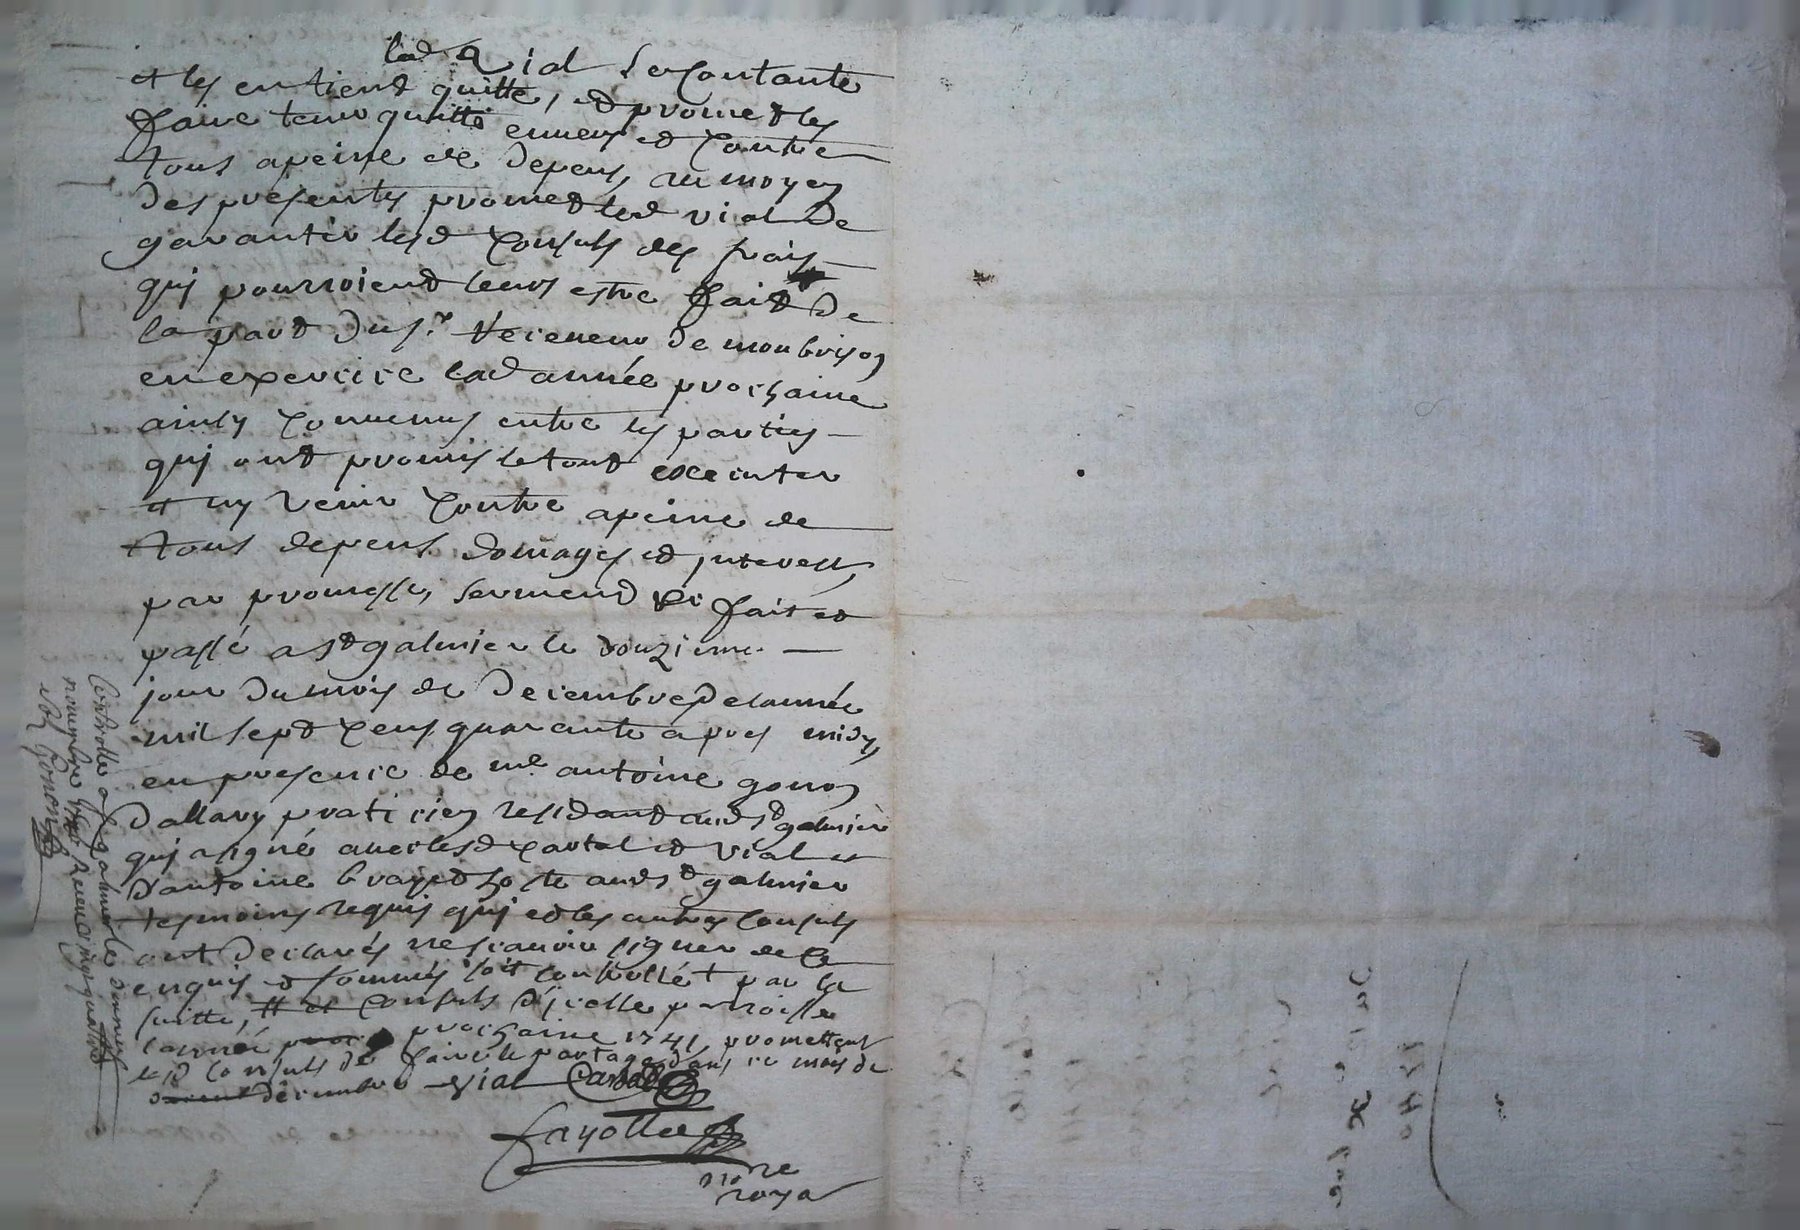 led Vial se contante
et les en tient quitte, et promet les
faire tenir quitte envers et contre
tous a peine de depens, au moyen
des presentes promet led vial de
garantir lesd consuls des frais
qui pourroient leurs estre fait de
la part du sr. Receveur de monbrison
en exercice lad année prochaine
ainsy convenus entre les parties
qui ont promis le tout executer
et ny venir contre a peine de
tous depens domages et interest,
par promesse, serment &c fait et
passé a st galmier le douzieme
jour du mois de decembre de lannée
mil sept cens quarante apres midy,
en presence de me antoine gonon
dallary praticien residant aud st galmier
qui a signé avec lesd cartal et vial et
dantoine brayet hoste aud st galmier
tesmoins requis qui et les autres consuls
ont declarés ne scavoir signer de ce
enquis et sommés soit controllé + par la
suitte, # et consuls d'icelle parroisse
lannée prochaine 1741, promettent
lesd consuls de faire le partage dans ce mois de
decembre Vial Cartal
fayolle
nore
roya
Controllé a st galmier le
nombre Receu cinq
Gonon
1740